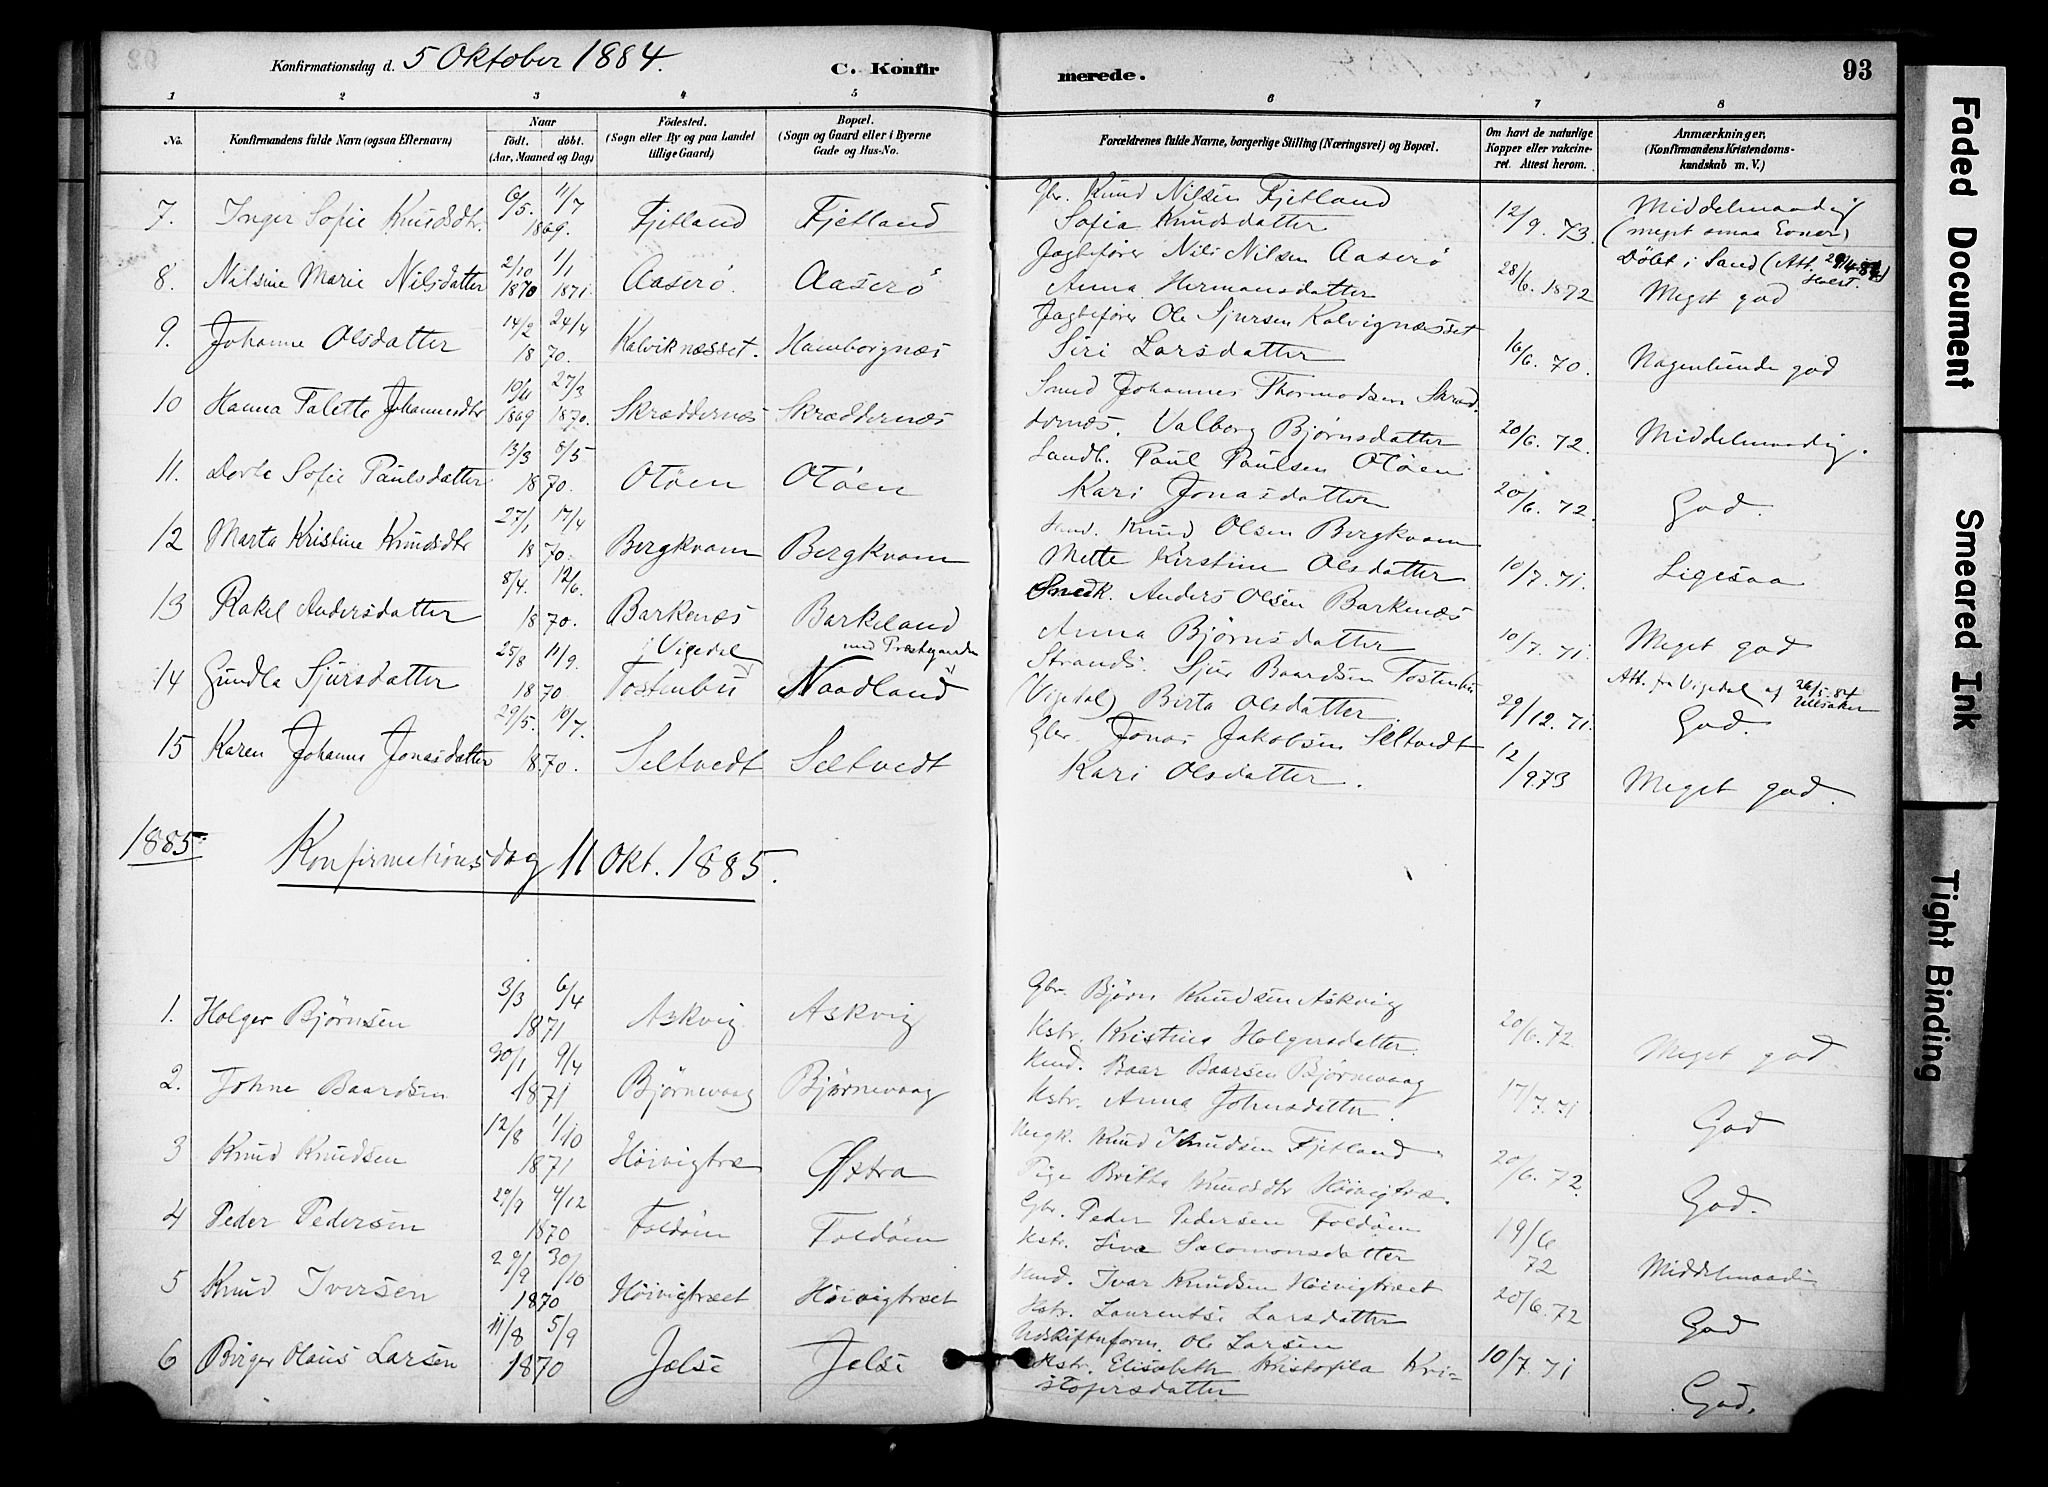 Konfirmationsdag d. 5 Oktober 1884.
C. Konfirmerede.
93
1 2 3 4 5 6 7 8
No.
Konfirmandens fulde Navn (ogsaa Efternavn)
Naar
födt. döbt.
(Aar, Maaned og Dag)
Födested.
(Sogn eller By og paa Landet
tillige Gaard)
Bopæl.
(Sogn og Gaard eller i Byerne
Gade og Hus-No.
Forældrenes fulde Navne, borgerlige Stilling (Næringsvei) og Bopæl.
Om havt de naturlige
Kopper eller vakcine-
ret. Attest herom.
Anmærkninger.
(Konfirmandens Kristendoms-
kundskab m. V.)
7. Inger Sofie Knudsdtr. 6/5. 11/7 1869. Fjetland Fjetland
Gbr. Knud Nilsen Fjetland
Sofia Knudsdatter 12/9. 73.
Middelmaadig
(meget smaa Evner)
8. Nilsine Marie Nilsdatter 2/10 1870 1/1 1871. Aaserö Aaserö
Jagtefører Nils Nilsen Aaserö
Anna Hermansdatter 28/6. 1872
Döbt i Sand (Att. 29/4 84 Holst.)
Meget god
9. Johanne Olsdatter 14/2 24/4 1870. Kalviknæsset. Hamborgnæs
Jagtefører Ole Sjursen Kalvignæsset
Siri Larsdatter 16/6. 70.
Nogenlunde god
10 Hanna Talette Johannesdtr 10/11 1869 27/3 1870. Skræddernæs Skræddernæs
Smed Johannes Thormodsen Skræd-
dernæs. Valborg Bjørnsdatter 20/6. 72.
Middelmaadig.
11. Dorte Sofie Paulsdatter 13/3 8/5 1870. Otöen Otöen
Landh. Paul Paulsen Otöen
Kari Jonasdatter 20/6. 72.
God.
12 Marta Kristine Knudsdtr 27/1 17/4 1870. Bergkvam Bergkvam
Knud Olsen Bergkvam
Mette Kirstine Olsdatter 10/7. 71.
Ligesaa
13 Rakel Andersdatter 8/4. 12/6. 1870. Barkenæs Barkeland
med Prestegaarden
Snedk. Anders Olsen Barkenæs
Anna Bjørnsdatter 10/7. 71.
Meget god
14 Gundla Sjursdatter 25/8 11/9. 1870 i Vigedal
Tostenbu Naadland
Strands. Sjur Baardsen Tostenbu
(Vigedal) Birta Olsdatter 29/12. 71.
Att. fra Vigedal af 26/5. 84 Ullsaker
God.
15 Karen Johanne Jonasdatter 29/5. 10/7. 1870. Seltvedt Seltvedt
Gbr. Jonas Jakobsen Seltvedt
Kari Olsdatter. 12/9 73
Meget god.
1885. Konfirmationsdag 11 Okt. 1885.
1. Holger Bjørnsen 3/3 6/4 1871 Askvig Askvig
Gbr. Bjørn Knudsen Askvig
Kstr. Kristina Holgersdatter. 20/6. 72
Meget god.
2. Johne Baardsen 30/1 9/4 1871 Björnevaag Björnevaag
Kmd. Baar Baarsen Björnevaag
Kstr. Anna Johnsdatter. 17/7. 71
God
3 Knud Knudsen 12/8 1/10 1871 Höivigtræ Østra
Knud Knudsen Fjetland
Pige Britha Knudsdtr Höivigtræ. 20/6. 72.
God.
4 Peder Pedersen 29/9 4/12 1870 Foldöen Foldöen
Gbr. Peder Pedersen Foldöen
Kstr. Siva Salomonsdatter 19/6 72
Middelmaadig
5 Knud Iversen 29/9 30/10 1870 Höivigtræet Höivigtræet
Kmd. Ivar Knudsen Höivigtræet
Kstr. Laurentse Larsdatter 20/6. 72
God
6 Birger Olaus Larsen 11/8 5/9 1870 Jælse Jelse
Udskiftnform. Ole Larsen
Kstr. Elisabeth Kristofila Kri-
stofersdatter 10/7. 71
God.
Faded Document
Smeared Ink
Tight Binding